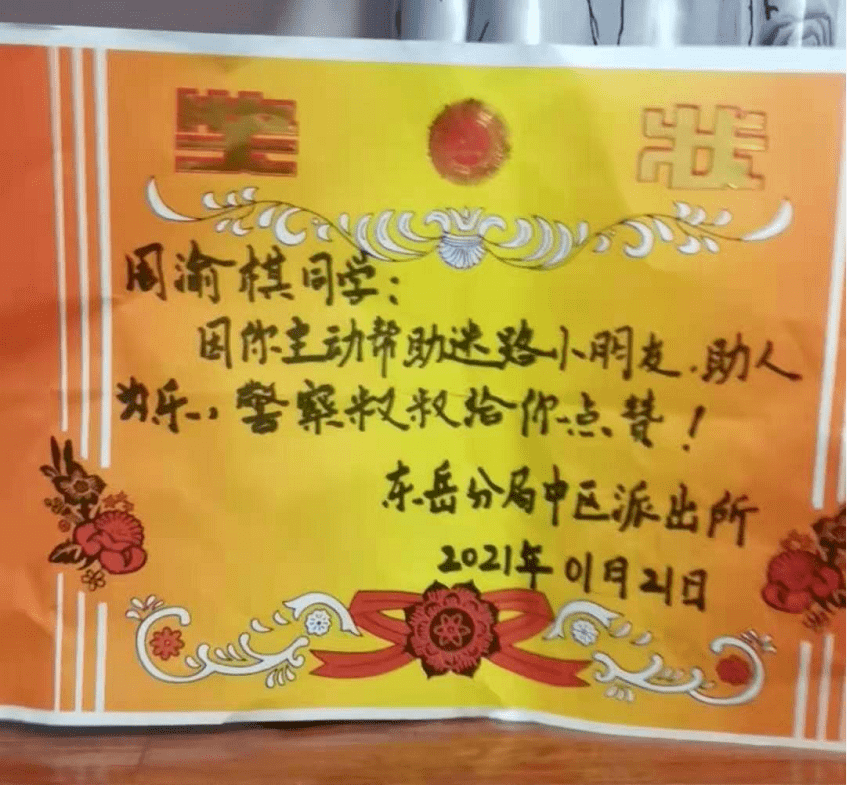 奖 状
周渝棋同学：
因你主动帮助迷路小朋友、助人
为乐，警察叔叔给你点赞！
东岳分局中区派出所
2021年01月21日